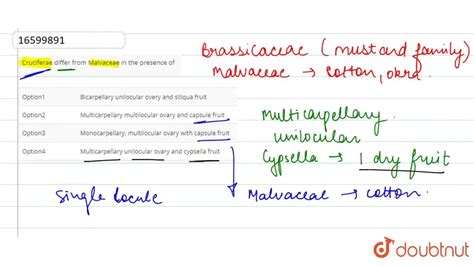 16599891
Cruciferae differ from Malvaceae in the presence of
Option1 Bicarpellary unlocular ovary and siliqua fruit
Option2 Multicarpellary multilocular ovary and capsule fruit
Option3 Monocarpellary. multilocular ovary with capsule fruit
Option4 Multicarpellary unilocular ovary and cypsella fruit
Single locule
Brassicaceae (mustard family)
Malvaceae → cotton, okra
Multicarpellary
unilocular
Cypsella → 1 dry fruit
Malvaceae → cotton.
doubtnut